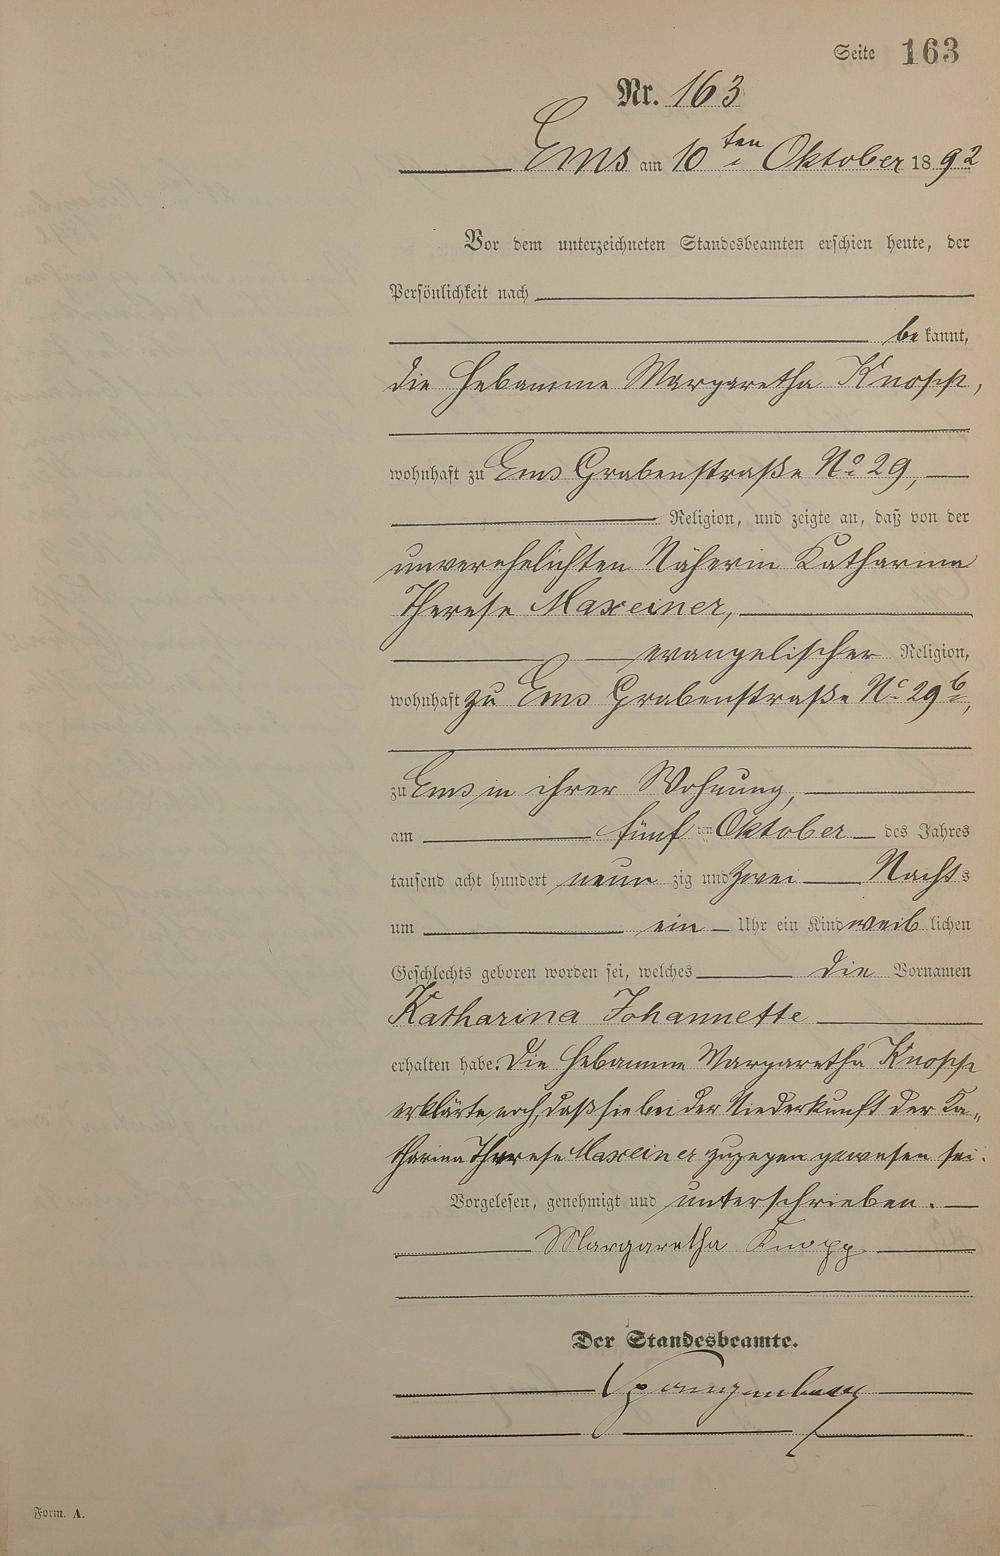 Seite 163
Nr. 163
Ems am 10ten Oktober 1892
Vor dem unterzeichneten Standesbeamten erschien heute, der
Persönlichkeit nach
bekannt,
die Hebamme Margaretha Knopp,
wohnhaft zu Ems Grabenstraße No 29,
Religion, und zeigte an, daß von der
unverehelichten Näherin Katharina
Therese Maxeiner,
evangelischer Religion,
wohnhaft zu Ems Grabenstraße No 29b,
zu Ems in ihrer Wohnung,
am fünften Oktober des Jahres
tausend acht hundert neunzig und zwei Nachts
um ein Uhr ein Kind weiblichen
Geschlechts geboren worden sei, welches die Vornamen
Katharina Johannette
erhalten habe. Die Hebamme Margaretha Knopp
erklärte noch, daß sie bei der Niederkunft der Ka„
tharina Therese Maxeiner zugegen gewesen sei.
Vorgelesen, genehmigt und unterschrieben.
Margaretha Knopp
Der Standesbeamte.
Spangenberg
Form. A.